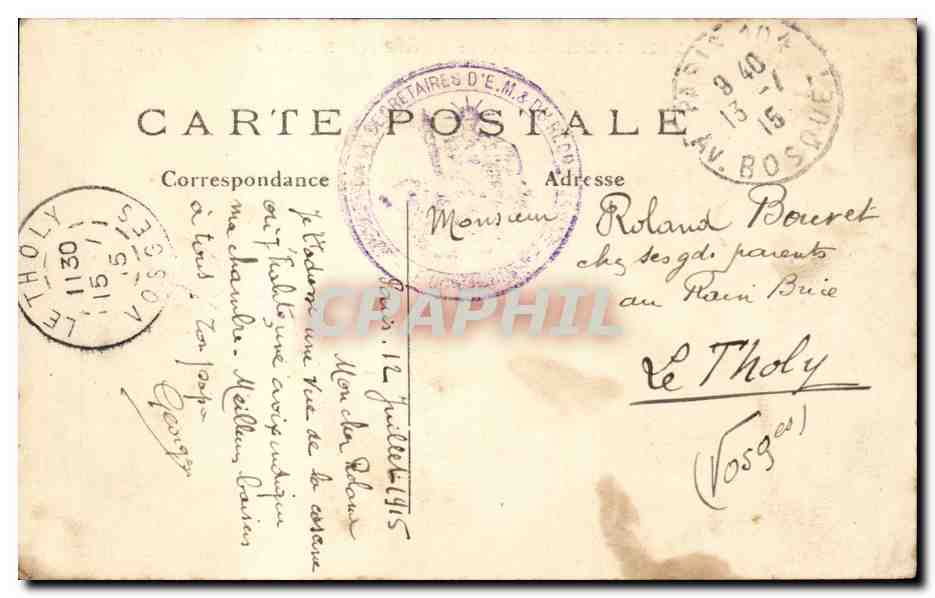 CARTE POSTALE
Correspondance
Adresse
SECRETAIRES D'E.M. & DU RECRUT
PARIS
9 40
13 -7
15
AV. BOSQUET
LE THOLY
1130
15 / 7
15
VOSGES
Monsieur
Roland Bouvet
chez ses gds parents
au Rain Brice
Le Tholy
(Vosges)
Paris, 12 Juillet 1915
Mon cher Roland
Je t'adresse une vue de la caserne
où j'habite, une croix indique
ma chambre. Meilleurs baisers
à tous. Ton papa
Georges
CPAPHIL